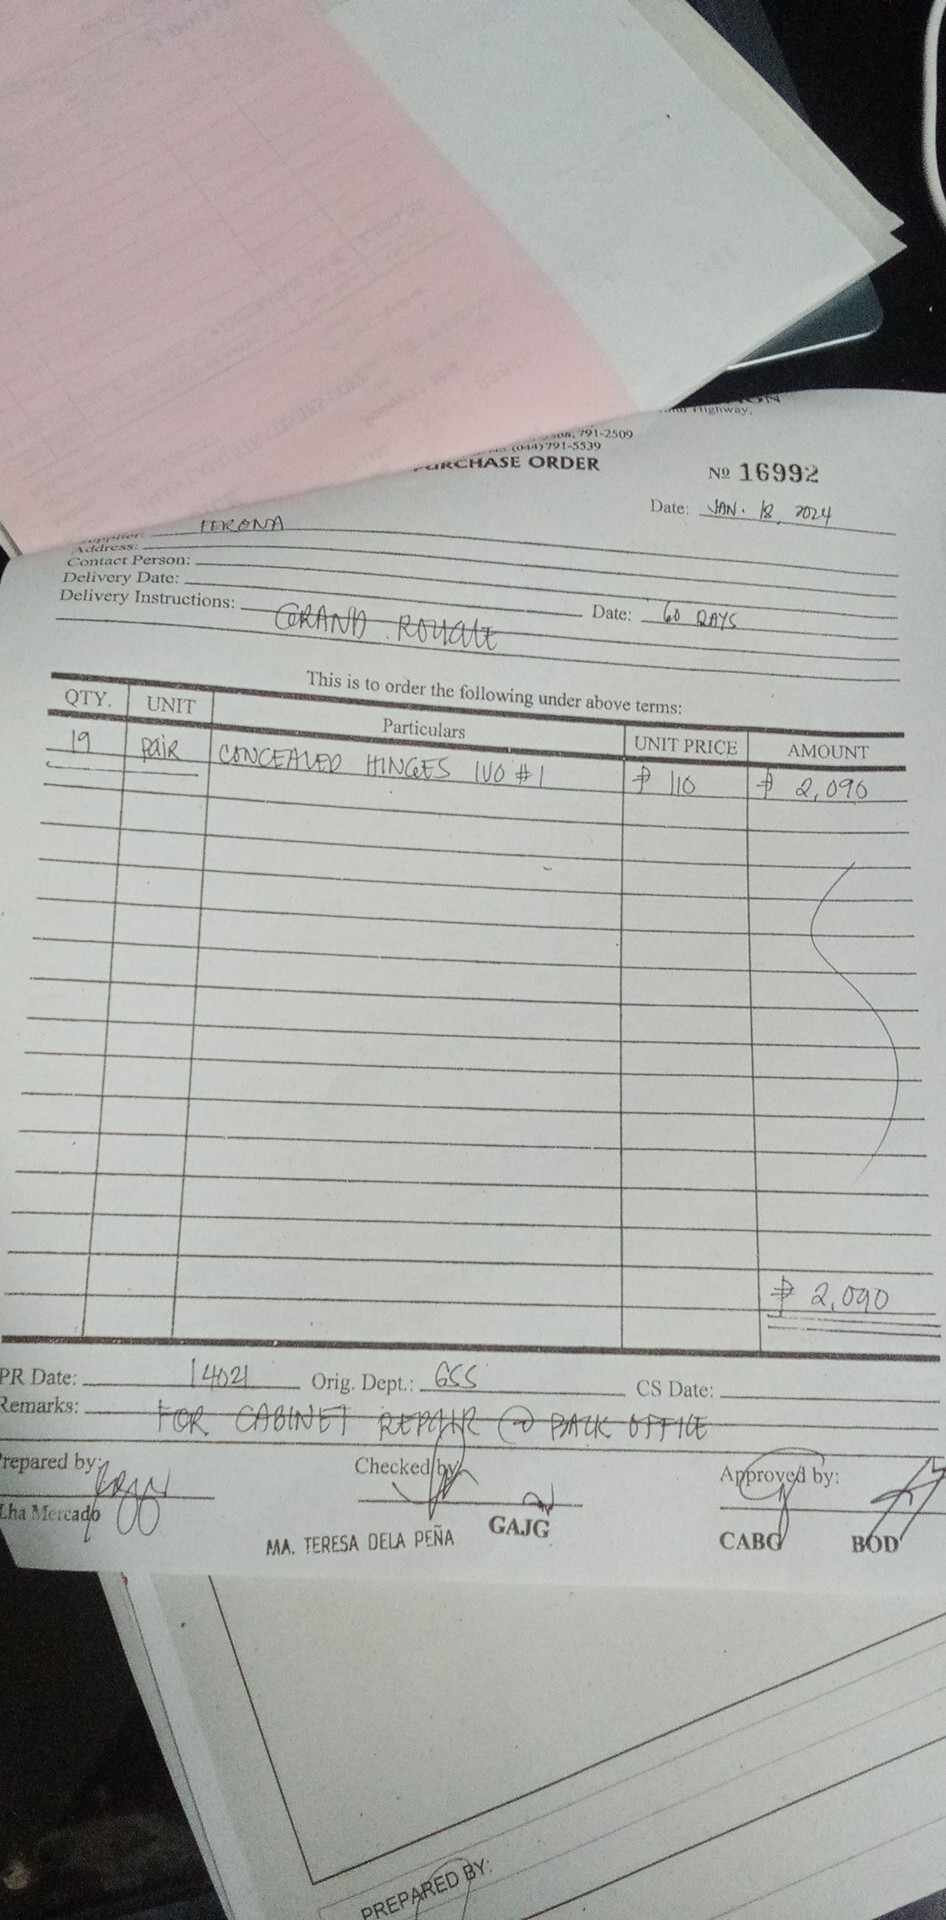 Highway,
791-2509
(044)791-5539
PURCHASE ORDER
№ 16992
Date: JAN. 18, 2024
Supplier:
Address:
Contact Person:
Delivery Date:
Delivery Instructions: Date: 60 DAYS
GRAND ROYALE
This is to order the following under above terms:
QTY. UNIT Particulars UNIT PRICE AMOUNT
19 pair CONCEALED HINGES IVO #1 ₱ 110 ₱ 2,090
₱ 2,090
PR Date: 14021 Orig. Dept.: GSS CS Date:
Remarks: FOR CABINET REPAIR @ BACK OFFICE
Prepared by: Checked by: Approved by:
Lha Mercado MA. TERESA DELA PEÑA GAJG CABG BOD
PREPARED BY: